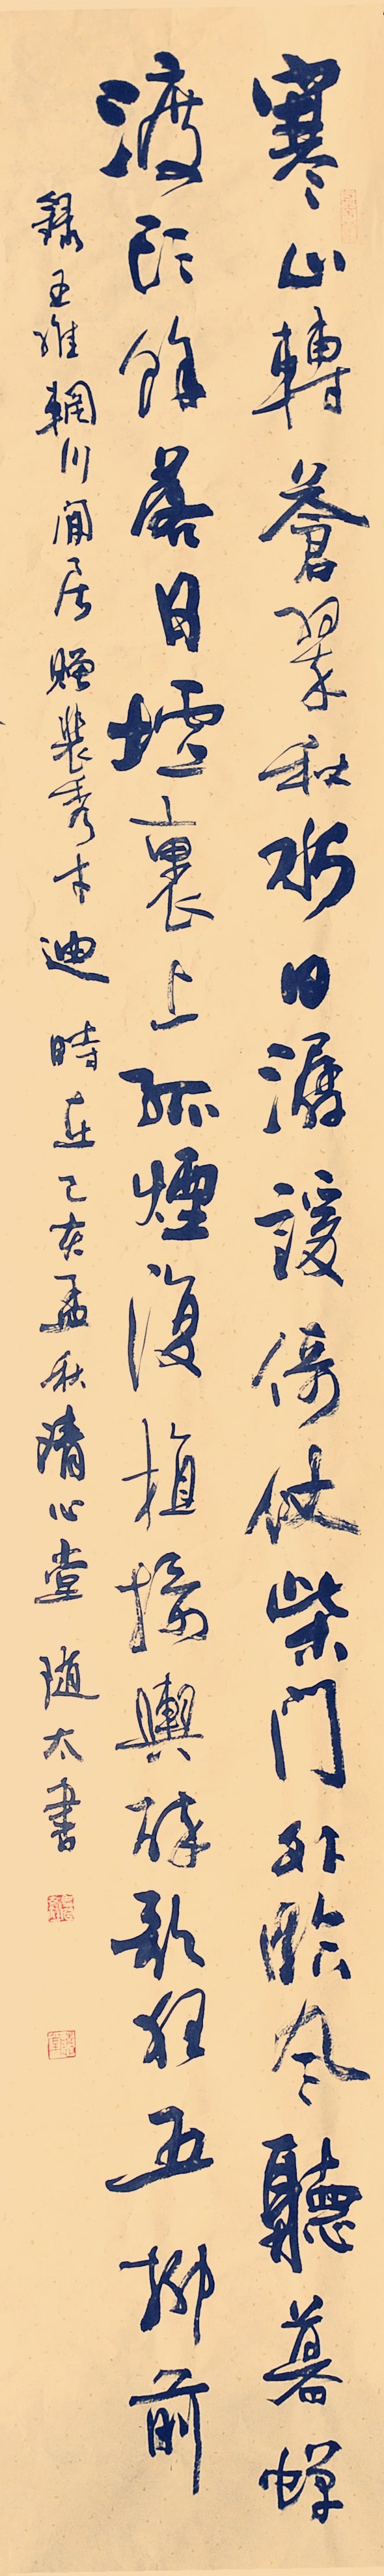 寒山轉蒼翠秋水日潺諼倚仗柴門外臨風聽暮蟬
渡頭餘落日墟裏上孤煙復植接輿醉歌狂五柳前
錄王維輞川閒居贈裴秀才迪 時在己亥孟秋清心堂 随太書